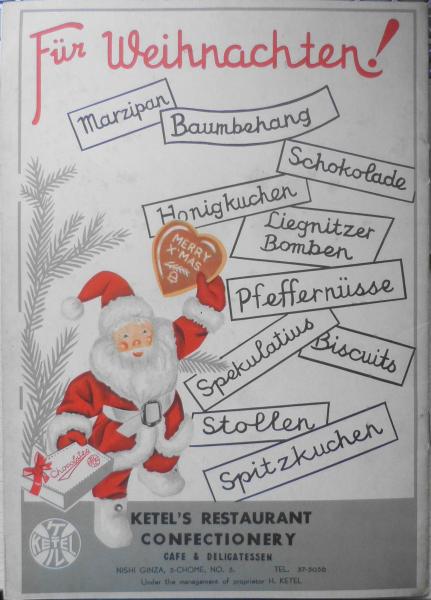 Für Weihnachten!
Marzipan
Baumbehang
Schokolade
Honigkuchen
Liegnitzer
Bomben
MERRY
X'MAS
Pfeffernüsse
Spekulatius
Biscuits
Stollen
Spitzkuchen
Chocolates
KETEL
KETEL'S RESTAURANT
CONFECTIONERY
CAFE & DELICATESSEN
NISHI GINZA, 5-CHOME, NO. 5. TEL. 57-5056
Under the management of proprietor H. KETEL